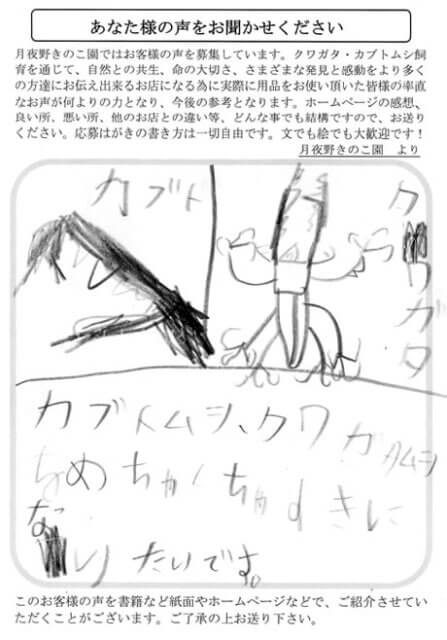 あなた様の声をお聞かせください
月夜野きのこ園ではお客様の声を募集しています。クワガタ・カブトムシ飼
育を通じて、自然との共生、命の大切さ、さまざまな発見と感動をより多く
の方達にお伝え出来るお店になる為に実際に用品をお使い頂いた皆様の率直
なお声が何よりの力となり、今後の参考となります。ホームページの感想、
良い所、悪い所、他のお店との違い等、どんな事でも結構ですので、お送り
ください。応募はがきの書き方は一切自由です。文でも絵でも大歓迎です!
月夜野きのこ園 より
カブト
クワガタ
カブトムシ、クワガタムシ
をめちゃくちゃすきに
なりたいです。
このお客様の声を書籍など紙面やホームページなどで、ご紹介させてい
ただくことがございます。ご了承の上お送り下さい。